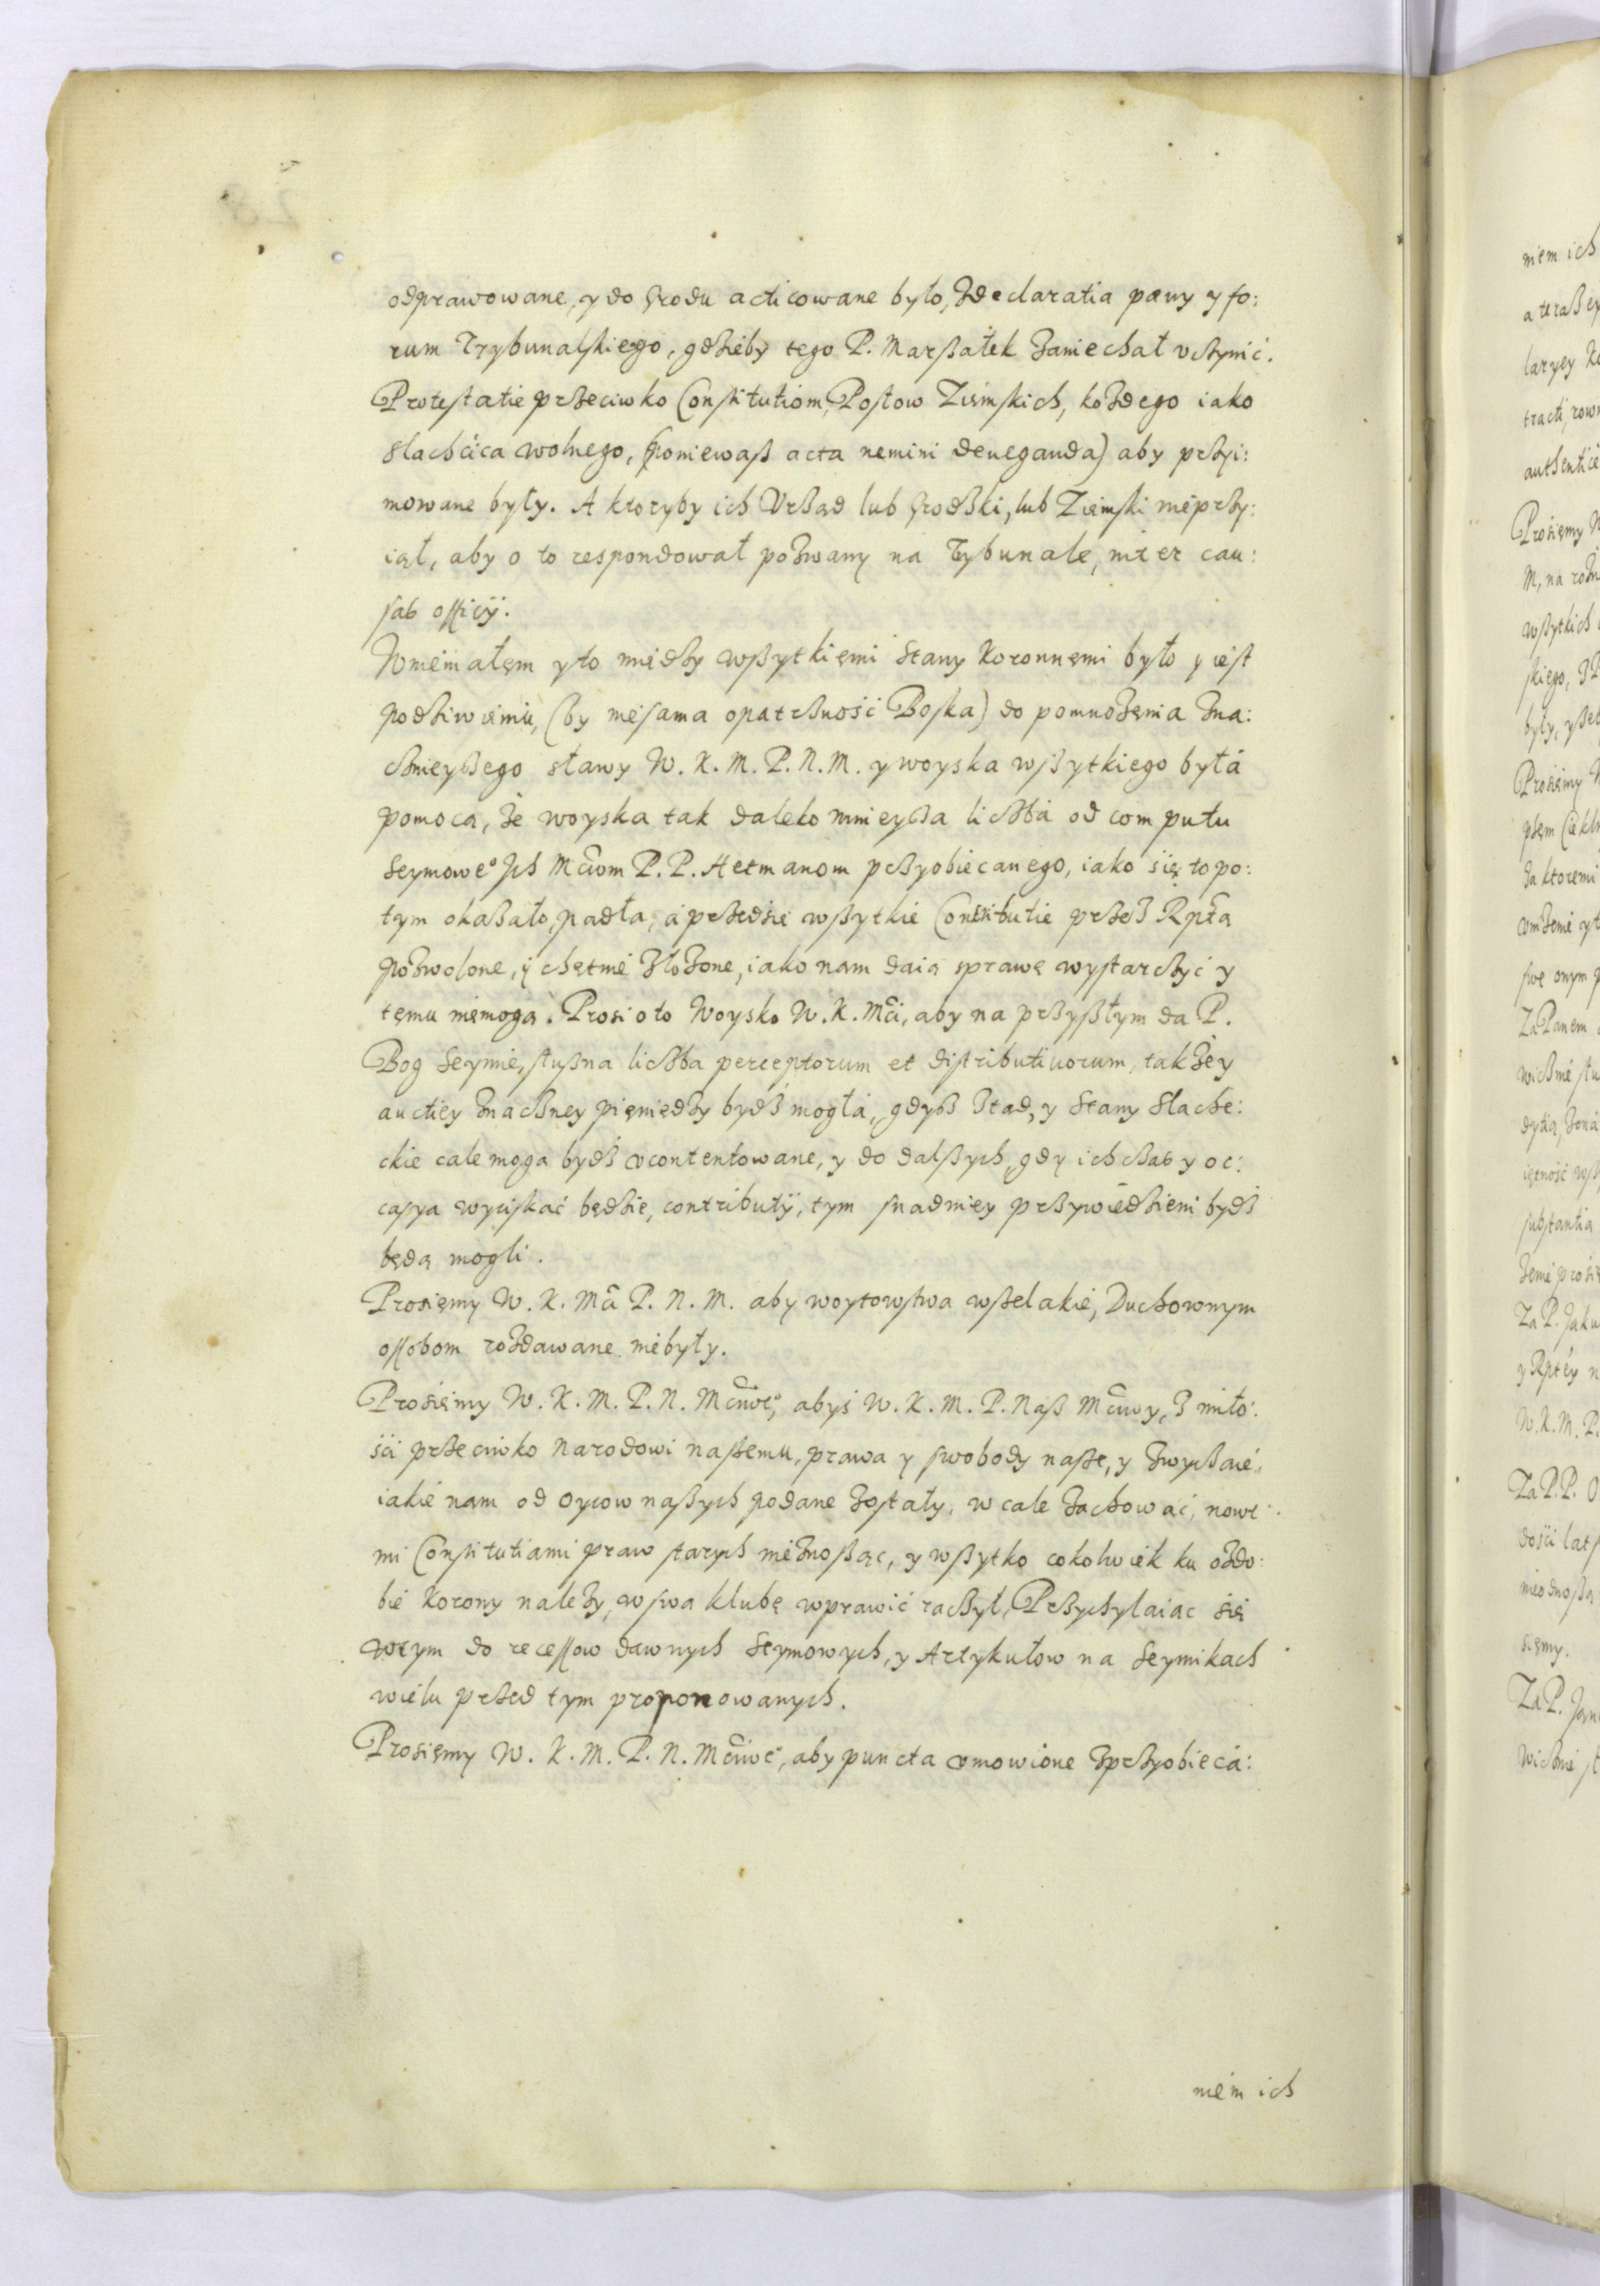 odprawowane, y do Grodu acticowane było, z declaratia pæny y fo:
rum Trybunalskiego, gdzieby tego P. Marszałek zaniechał vczynić.
Protestatie przeciwko Constitutiom, Posłow Ziemskich, kożdego iako
Slachcica wolnego, (poniewasz acta nemini deneganda) aby przyi:
mowane były. A ktoryby ich Vrząd lub Grodzki, lub Ziemski nieprzy:
iął, aby o to respondował pozwany na Trybunale, inter cau:
sas officij.
Niemałęm y to między wszytkięmi Stany Koronnęmi było y iest
podziwieniu, (by nie sama opatrzność Boska) do pomnożęnia zna:
cznieyszego sławy W. K. M. P. N. M. y woyska wszytkiego była
pomocą, że woyska tak daleko mnieysza liczba od computu
Seymoweº Ich Mciom P. P. Hetmanom przyobiecanego, iako się to po:
tym okazało, padła, a przedsie wszytkie Constitutie przez Rptą
pozwolone, y chętnie złożone, iako nam daią sprawę wystarczyć y
tęmu niemogą. Prosi o to Woysko W. K. Mci, aby na przyszłym da P.
Bog Seymie, słuszna liczba perceptorum et distributiuorum, takżey
auctiey znaczney pięniędzy bydź mogła, gdysz ztąd, y Stany Slache:
ckie cale mogą bydź vcontentowane, y do dalszych, gdy ich czas y oc:
casya wyciskać będzie, contributij, tym snadniey przywiedzieni bydź
będą mogli.
Prosięmy W. K. Mci P. N. M. aby woytowstwa wszelakie, Duchownym
ossobom rozdawane niebyły.
Prosięmy W. K. M. P. N. Mciweº, abyś W. K. M. P. Nasz Mciwy, z miło:
ści przeciwko Narodowi naszemu, prawa y swobody nasze, y zwyczaie,
iakie nam od Oycow naszych podane zostały, w cale zachować, nowe:
mi Constitutiami praw starych nieznosząc, y wszytko cokolwiek ku ozdo:
bie Korony należy, w swą klubę wprawić raczył, Przychylaiąc się
wtym do recessow dawnych Seymowych, y Artykułow na Seymikach
wielu przed tym proponowanych.
Prosięmy W. K. M. P. N. Mciweº, aby puncta vmowione z przyobieca:
niem ich